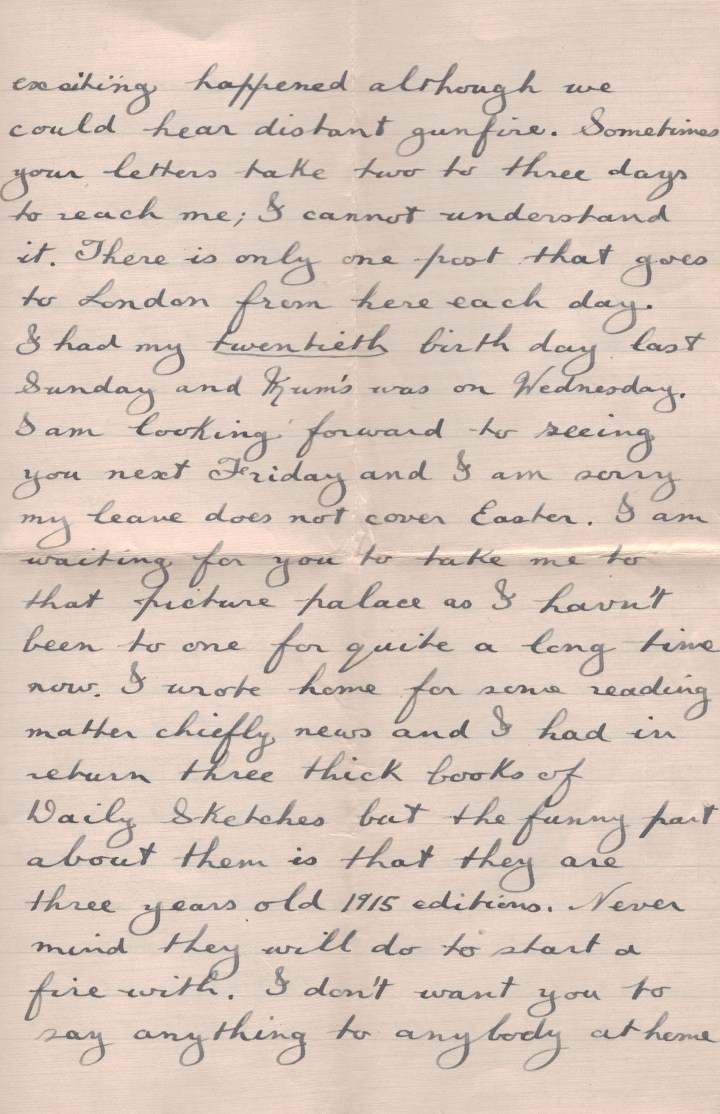 exciting happened although we
could hear distant gunfire. Sometimes
your letters take two to three days
to reach me; I cannot understand
it. There is only one post that goes
to London from here each day.
I had my twentieth birth day last
Sunday and Mum's was on Wednesday.
I am looking forward to seeing
you next Friday and I am sorry
my leave does not cover Easter. I am
waiting for you to take me to
that picture palace as I havn't
been to one for quite a long time
now. I wrote home for some reading
matter chiefly news and I had in
return three thick books of
Daily Sketches but the funny part
about them is that they are
three years old 1915 editions. Never
mind they will do to start a
fire with. I don't want you to
say anything to anybody at home